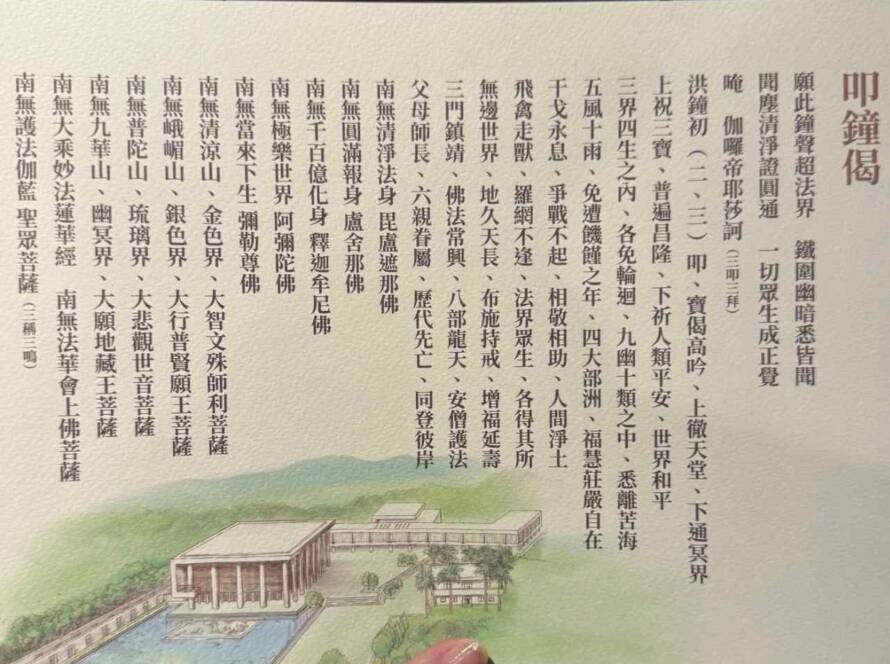 叩鐘偈
願此鐘聲超法界　鐵圍幽暗悉皆聞
聞塵清淨證圓通　一切眾生成正覺
唵　伽囉帝耶莎訶（三叩三拜）
洪鐘初（二、三）叩、寶偈高吟、上徹天堂、下通冥界
上祝三寶、普遍昌隆、下祈人類平安、世界和平
三界四生之內、各免輪迴、九幽十類之中、悉離苦海
五風十雨、免遭饑饉之年、四大部洲、福慧莊嚴自在
干戈永息、爭戰不起、相敬相助、人間淨土
飛禽走獸、羅網不逢、法界眾生、各得其所
無邊世界、地久天長、布施持戒、增福延壽
三門鎮靖、佛法常興、八部龍天、安僧護法
父母師長、六親眷屬、歷代先亡、同登彼岸
南無清淨法身 毘盧遮那佛
南無圓滿報身 盧舍那佛
南無千百億化身 釋迦牟尼佛
南無極樂世界 阿彌陀佛
南無當來下生 彌勒尊佛
南無清涼山、金色界、大智文殊師利菩薩
南無峨嵋山、銀色界、大行普賢願王菩薩
南無普陀山、琉璃界、大悲觀世音菩薩
南無九華山、幽冥界、大願地藏王菩薩
南無大乘妙法蓮華經　南無法華會上佛菩薩
南無護法伽藍 聖眾菩薩（三稱三鳴）